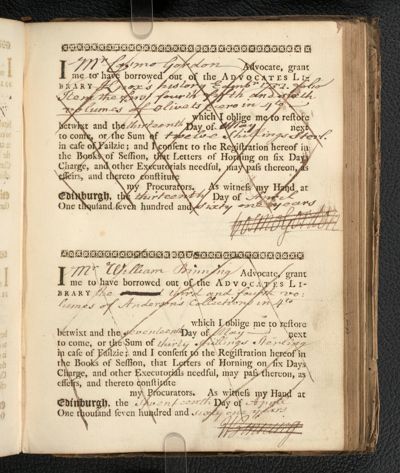 I Mr Cosmo Gordon Advocate, grant
me to have borrowed out of the ADVOCATES LI-
BRARY Knox's history Edinbr 1732. folio
Item the fourth fifth and sixth
volumes of Olivats Cicero in 4to
which I oblige me to restore
betwixt and the thirteenth Day of May next
to come, or the Sum of twelve shillings Sterl.
in case of Failzie; and I consent to the Registration hereof in
the Books of Session, that Letters of Horning on six Days
Charge, and other Executorials needful, may pass thereon, as
effeirs, and thereto constitute
my Procurators. As witness my Hand at
Edinburgh, the thirteenth Day of April
One thousand seven hundred and sixty one years
Cosmo Gordon
I Mr William Binning Advocate, grant
me to have borrowed out of the ADVOCATES LI-
BRARY the third and fourth vo-
lumes of Anderson's Collections in 4to
which I oblige me to restore
betwixt and the seventeenth Day of May next
to come, or the Sum of thirty shillings Sterling
in case of Failzie; and I consent to the Registration hereof in
the Books of Session, that Letters of Horning on six Days
Charge, and other Executorials needful, may pass thereon, as
effeirs, and thereto constitute
my Procurators. As witness my Hand at
Edinburgh, the seventeenth Day of April
One thousand seven hundred and sixty one years